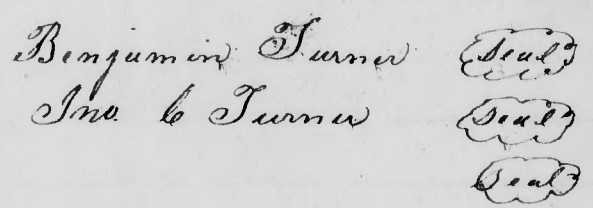 Benjamin Turner Seal
Jno. C Turner Seal
Seal